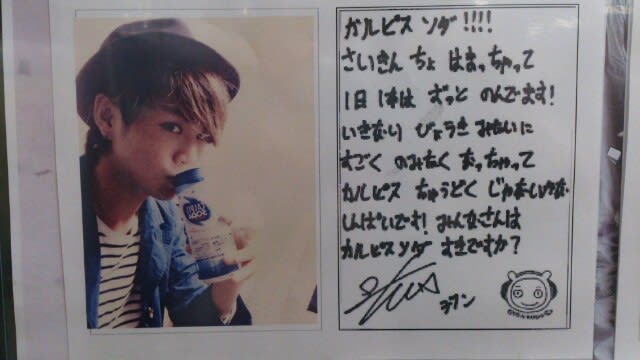 カルピス ソダ !!!!
さいきん ちょ はまっちゃって
1日 1本は ずっと のんでます!
いきなり びょうき みたいに
すごく のみたく なっちゃって
カルピス ちゅうどく じゃないかな
しんぱいです! みんなさんは
カルピスソダ すきですか?